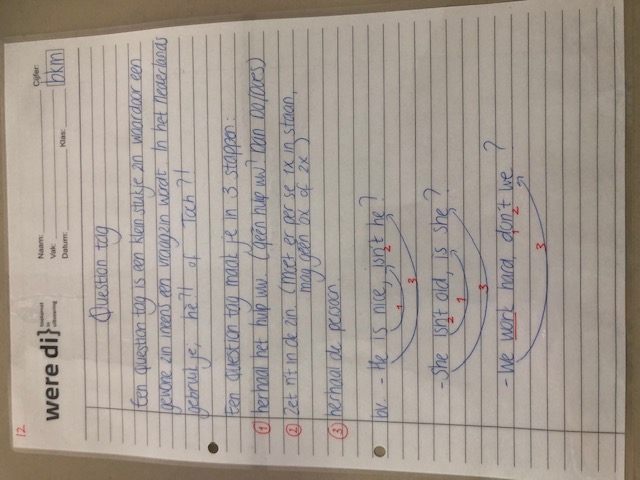 12
were di}
Naam:
Vak:
Datum:
Klas:
Cijfer:
bkm
Question tag
Een question tag is een klein stukje zin waardoor een
gewone zin ineens een vraagzin wordt. In het Nederlands
gebruik je, hè?! of Toch?!
Een question tag maak je in 3 stappen:
① herhaal het hulp ww. (geen hulp ww? Dan Do/Does)
② Zet n't in de zin (Moet er per se 1x in staan,
mag geen 0x of 2x)
③ herhaal de persoon.
bv. - He is nice, isn't he?
1 2 3
- She isn't old, is she?
2 1 3
- We work hard don't we?
1 2 3